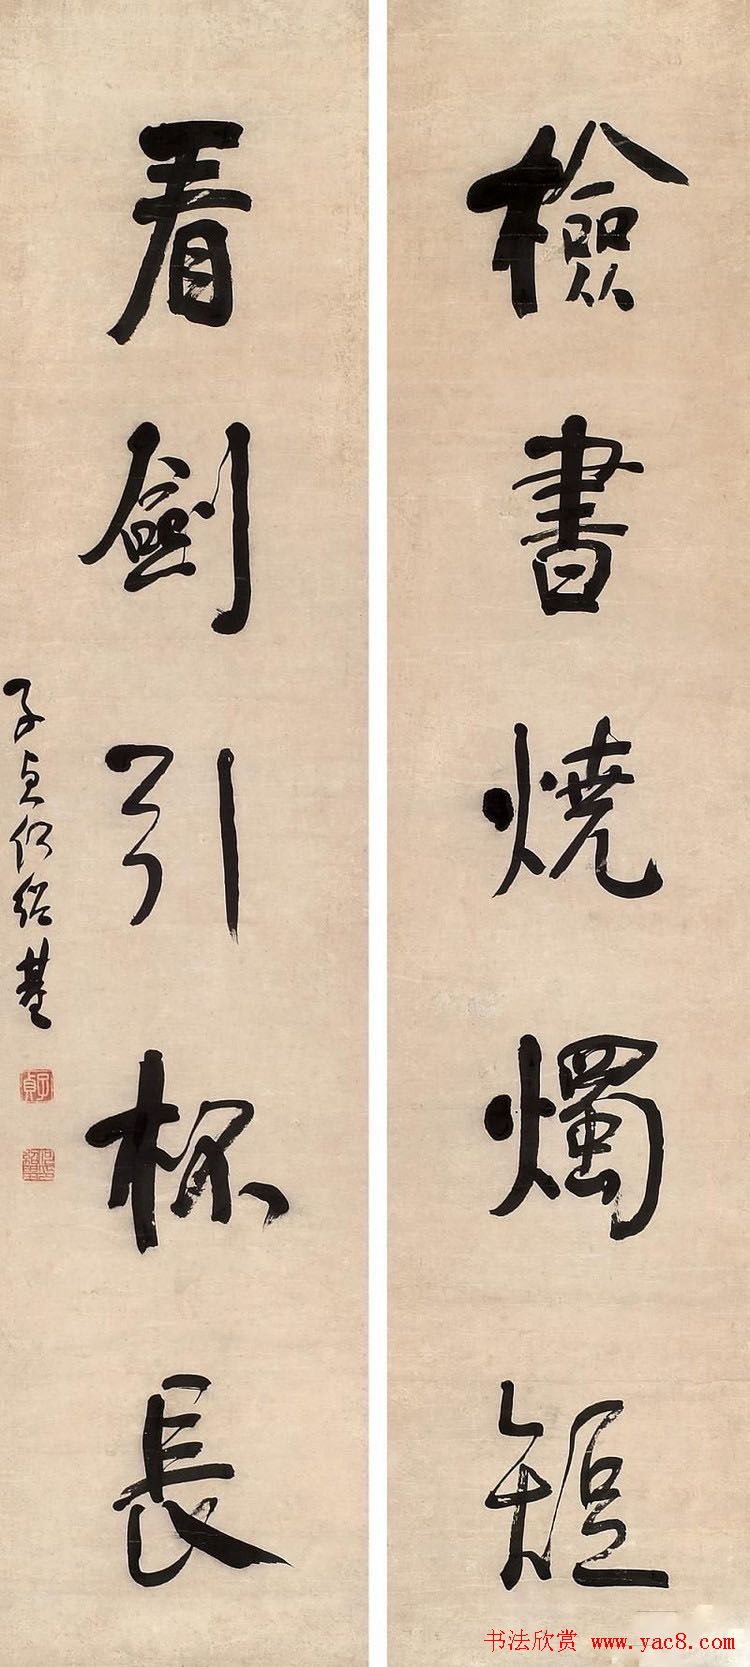 檢書燒燭短
看劍引杯長
子貞何紹基
子貞
書法欣赏 www.yac8.com